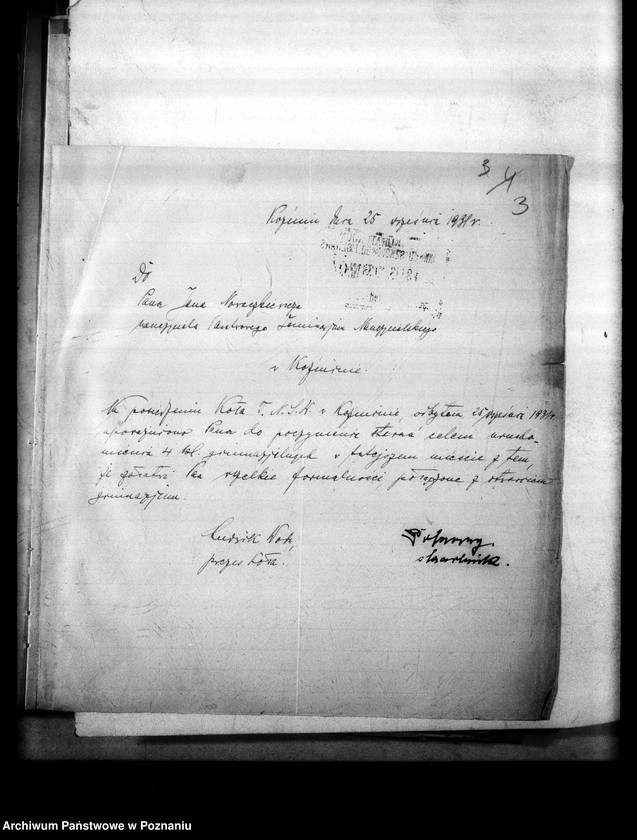 3 4
3
Koźmin dnia 25 września 1931 r.
Do
Pana Jana
nauczyciela Państwowego Seminarjum Nauczycielskiego
w Koźminie.
Na posiedzeniu Koła T.N.S.W. w Koźminie, odbytem 25 września 1931 r.
upoważniono Pana do poczynienia starań celem urucho-
mienia 4 kl. gimnazjalnych w tutejszem mieście z tem,
że załatwi Pan wszelkie formalności połączone z otwarciem
gimnazjum.
Ludwik
prezes koła.
skarbnik.
Archiwum Państwowe w Poznaniu